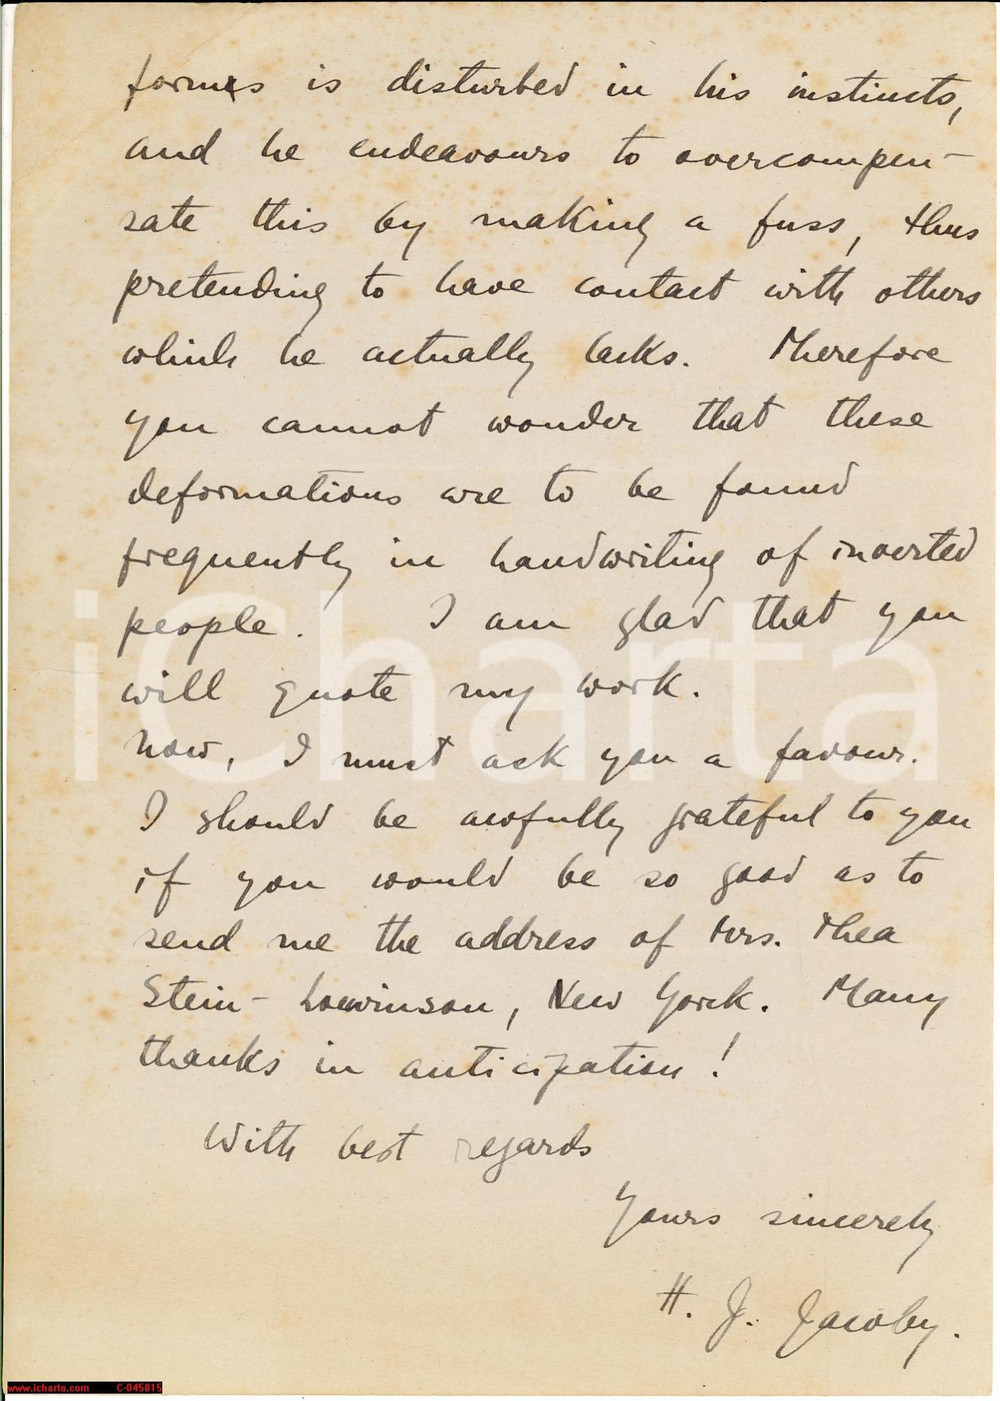 forms is disturbed in his instincts,
and he endeavours to overcompen-
sate this by making a fuss, thus
pretending to have contact with others
which he actually lacks. Therefore
you cannot wonder that these
deformations are to be found
frequently in handwriting of inverted
people. I am glad that you
will quote my work.
Now, I must ask you a favour.
I should be awfully grateful to you
if you would be so good as to
send me the address of Mrs. Thea
Stein-Loewinson, New York. Many
thanks in anticipation!
With best regards
Yours sincerely
H. J. Jacoby.
iCharta
www.icharta.com C-045815